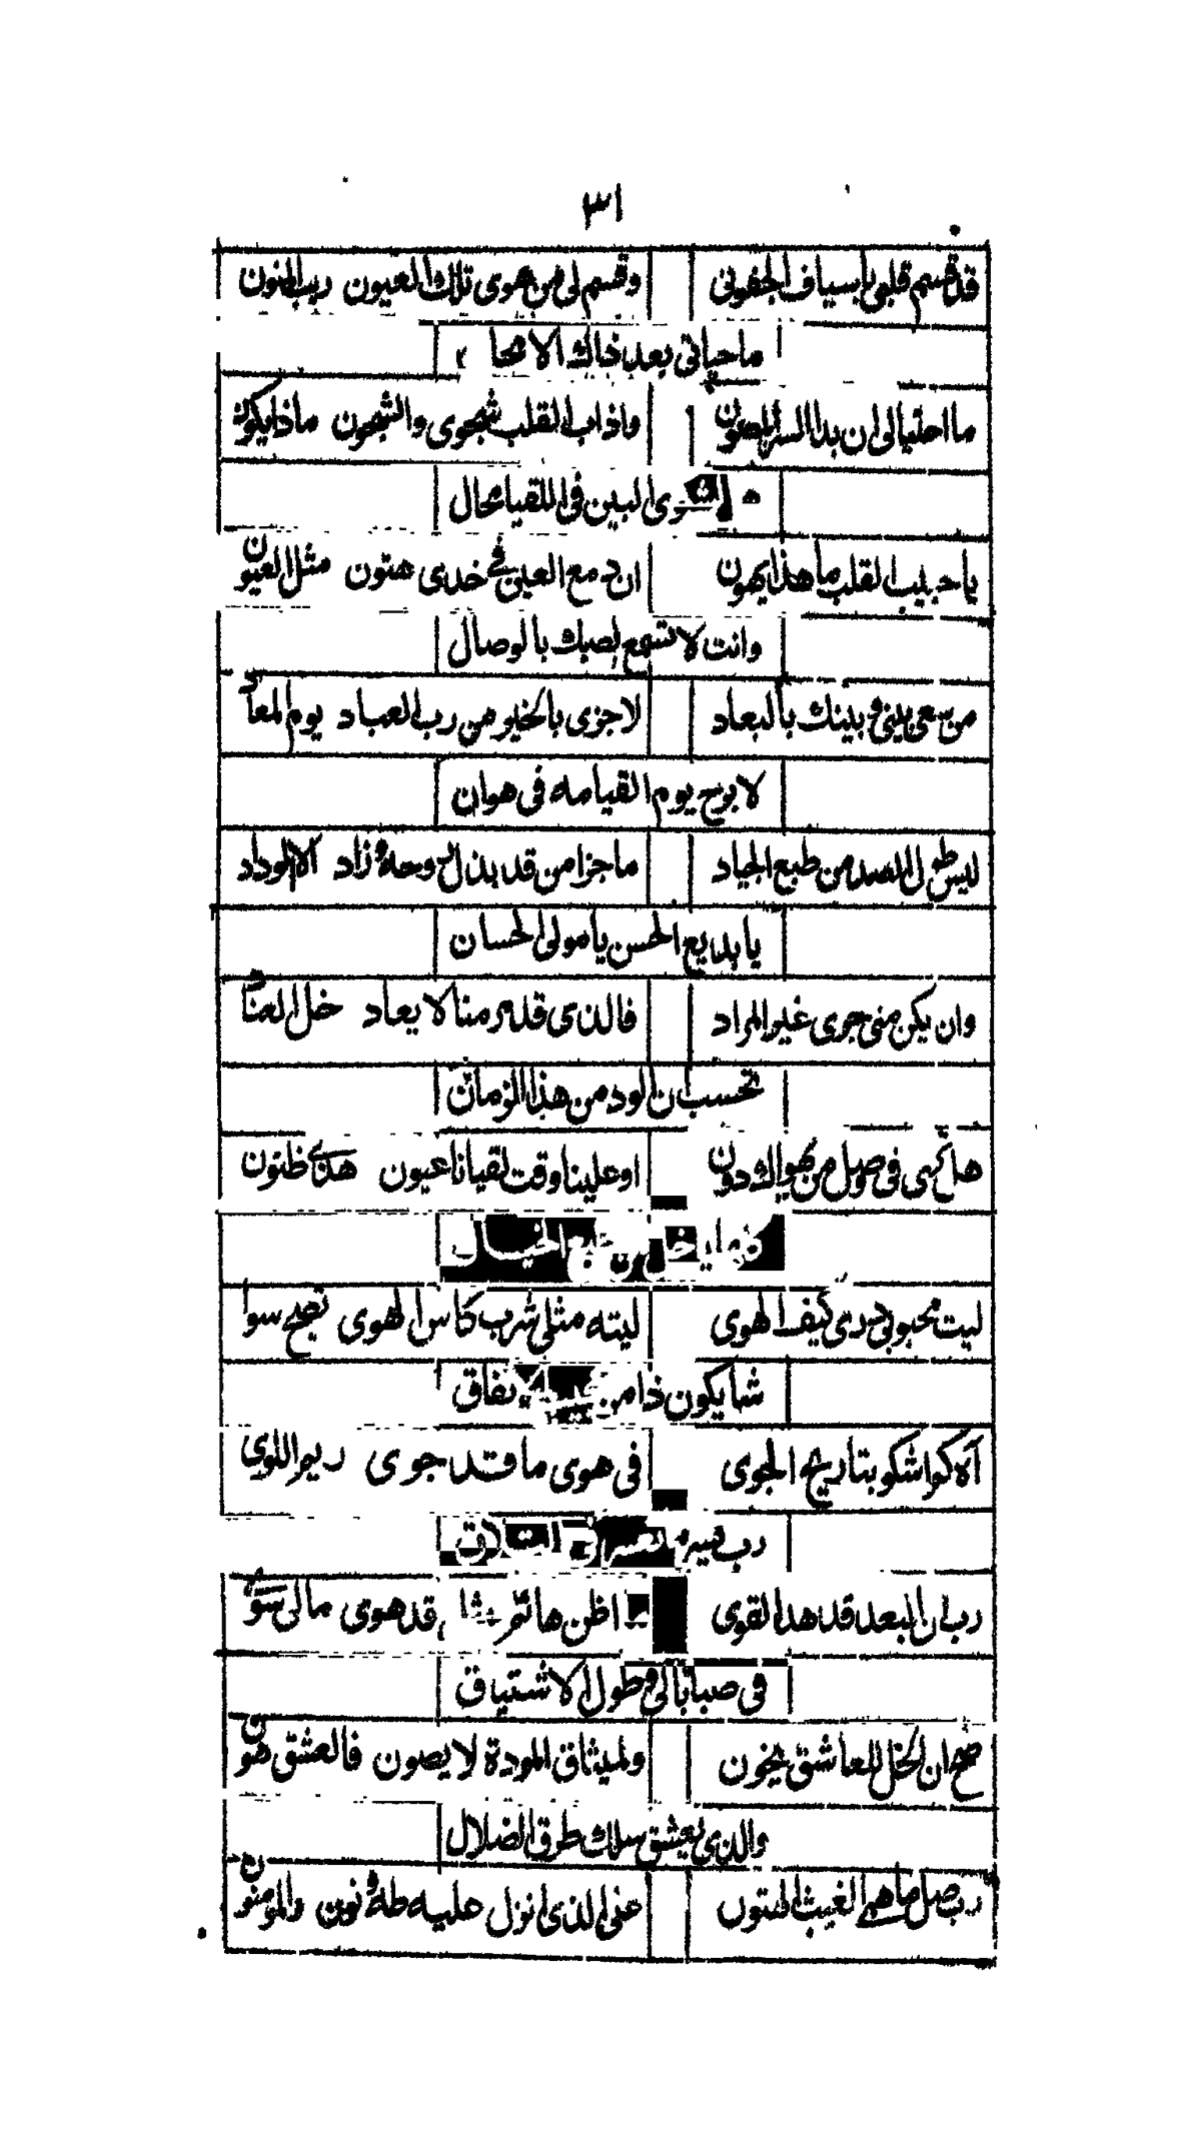 ٣١
قد قسم قلبي بأسياف الجفوني وقسم لى من هوى تلك العيون ريب المنون
ما حياتى بعد ذاك الا محا
ما احتيالى ان بدا السر المصون واذاب القلب شجوى والشجون ماذا يكون
وى البين فى اللقيا محال
يا حبيب القلب ما هذا يهون ان دمع العين فى خدى هتون مثل العيون
وانت لا تسمع لصبك بالوصال
من سعى بينى وبينك بالبعاد لا جزى بالخير من رب العباد يوم المعاد
لا برح يوم القيامه فى هوان
ليس طول الصد من طبع الجياد ما جزا من قد بذل روحه وزاد الا الوداد
يا بديع الحسن يا مولى الحسان
وان يكن منى جرى غير المراد فالذى قد مر منا لا يعاد خل العناد
تحسب ان الود من هذا الزمان
هل ترى فى وصل من يهواك دون او علينا وقت لقيانا عيون هذى ظنون
الخيال
ليت محبوبى درى كيف الهوى ليته مثلى شرب كاس الهوى نصبح سوا
شا يكون ذا من نفاق
آه كم اشكو بتاريح الجوى فى هوى ما قد جوى ريم اللوى
رب
رب ان البعد قد هد القوى اظن هائم قد هوى مالى سوى
فى صباباتى وطول الاشتياق
صح ان الخل للعاشق يخون ولميثاق المودة لا يصون فالعشق هون
والذى يعشق سلك طرق الضلال
رب صل ما همى الغيث الهتون على الذى انزل عليه طه ونون والمومنون